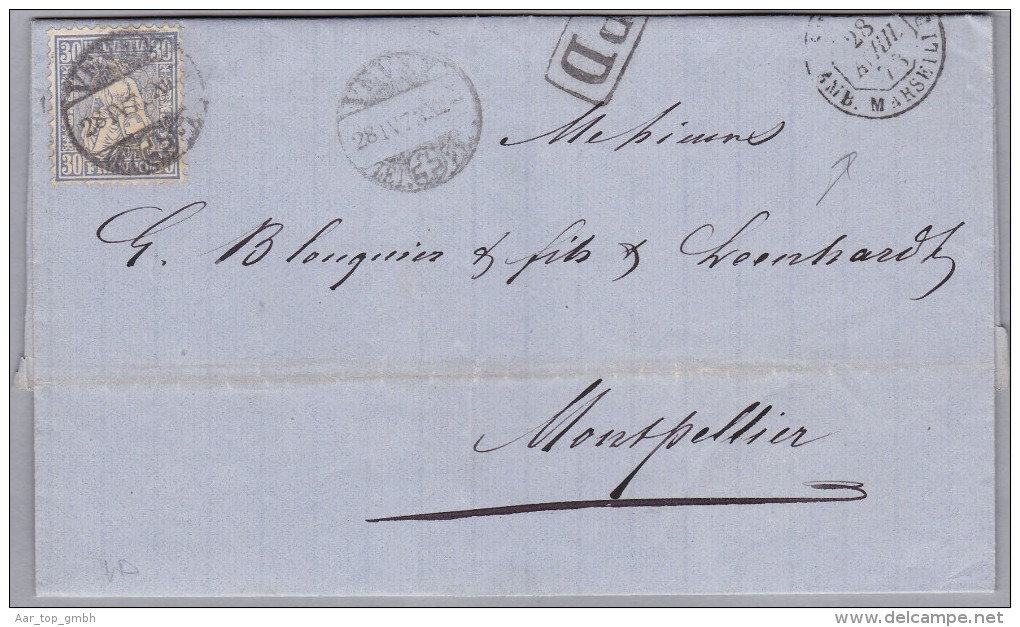 30 30
30
VEVEY
28 IV 73
PD
28
AVRIL
73
AMB. MARSEILLE
Messieurs
G. Blouquier & fils & Leenhardt
Montpellier
Aar_top_gmbh
www.delcampe.net